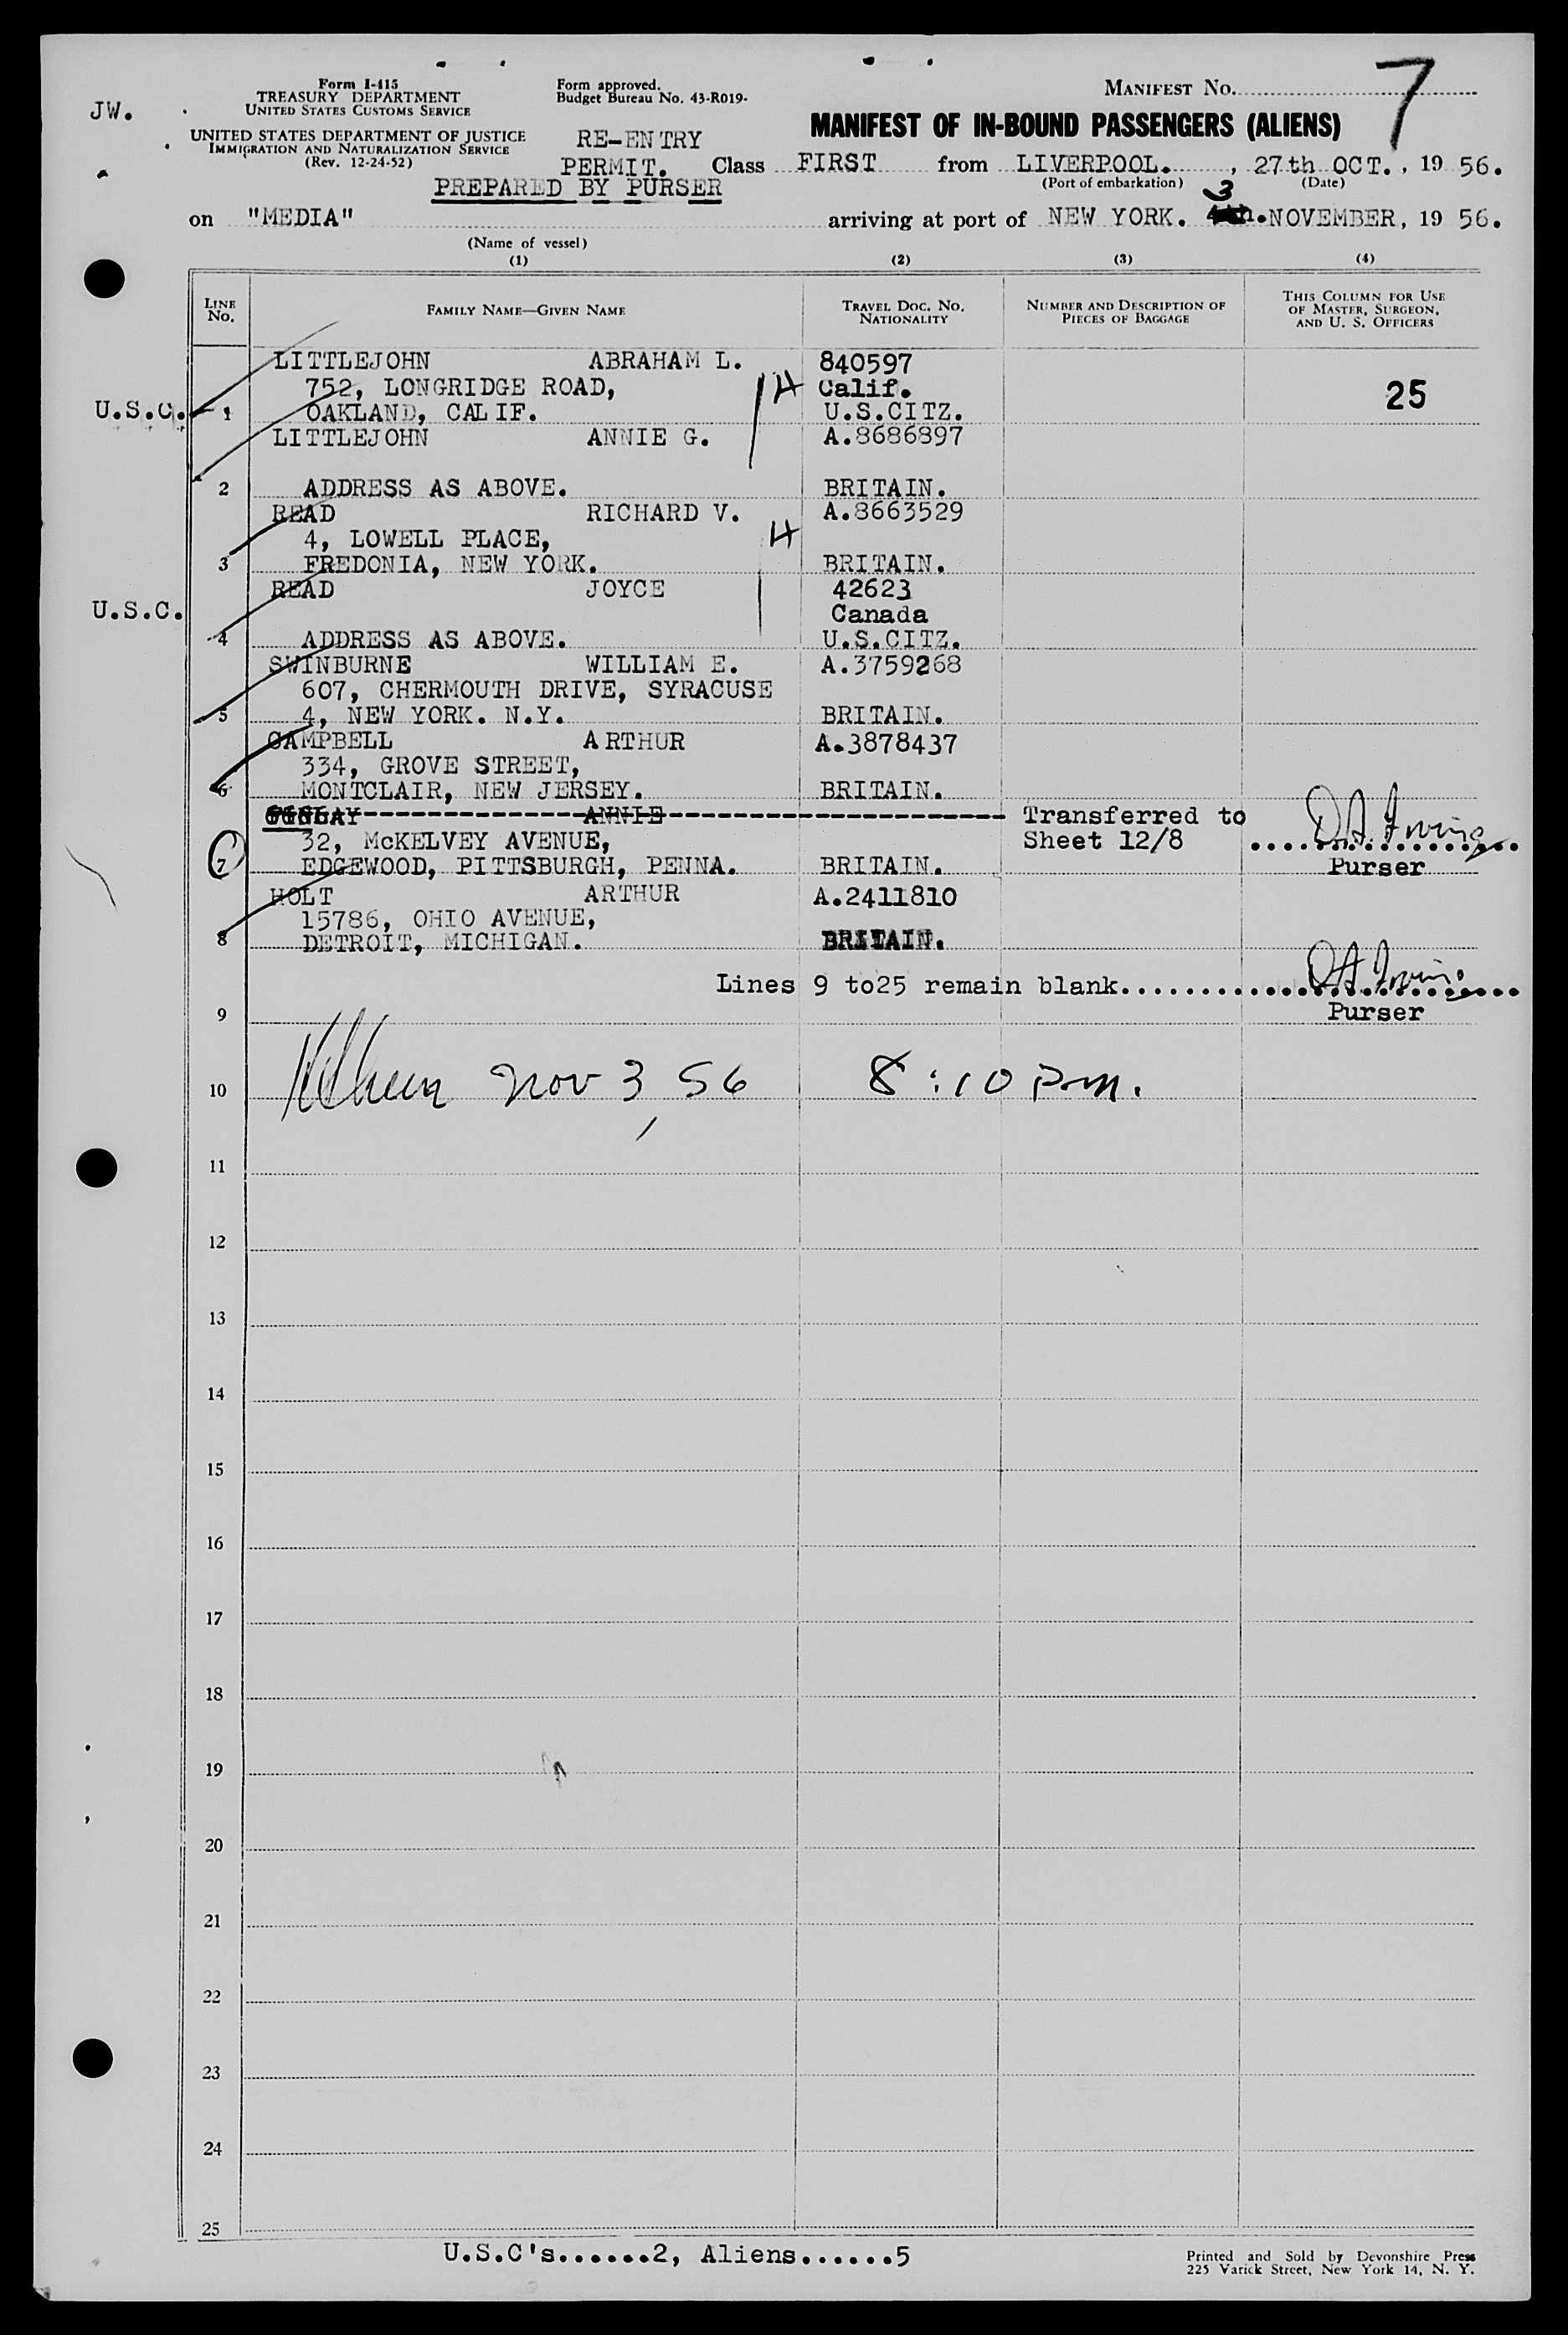 JW.
Form I-415
TREASURY DEPARTMENT
UNITED STATES CUSTOMS SERVICE
UNITED STATES DEPARTMENT OF JUSTICE
IMMIGRATION AND NATURALIZATION SERVICE
(Rev. 12-24-52)
Form approved.
Budget Bureau No. 43-R019-
RE-ENTRY
PERMIT.
PREPARED BY PURSER
MANIFEST No. 7
MANIFEST OF IN-BOUND PASSENGERS (ALIENS)
Class FIRST from LIVERPOOL. , 27th OCT. , 19 56.
(Port of embarkation) (Date)
on "MEDIA" arriving at port of NEW YORK. 3 NOVEMBER, 19 56.
(Name of vessel)
(1) (2) (3) (4)
LINE No. FAMILY NAME—GIVEN NAME TRAVEL DOC. No. NATIONALITY NUMBER AND DESCRIPTION OF PIECES OF BAGGAGE THIS COLUMN FOR USE OF MASTER, SURGEON, AND U. S. OFFICERS
LITTLEJOHN ABRAHAM L. 840597
752, LONGRIDGE ROAD, H Calif. 25
U.S.C. 1 OAKLAND, CALIF. U.S.CITZ.
LITTLEJOHN ANNIE G. A.8686897
2 ADDRESS AS ABOVE. BRITAIN.
READ RICHARD V. A.8663529
4, LOWELL PLACE, H
3 FREDONIA, NEW YORK. BRITAIN.
READ JOYCE 42623
U.S.C. Canada
4 ADDRESS AS ABOVE. U.S.CITZ.
SWINBURNE WILLIAM E. A.3759268
607, CHERMOUTH DRIVE, SYRACUSE
5 4, NEW YORK. N.Y. BRITAIN.
CAMPBELL ARTHUR A.3878437
334, GROVE STREET,
6 MONTCLAIR, NEW JERSEY. BRITAIN.
ANNIE Transferred to
32, McKELVEY AVENUE, Sheet 12/8
7 EDGEWOOD, PITTSBURGH, PENNA. BRITAIN. Purser
HOLT ARTHUR A.2411810
15786, OHIO AVENUE,
8 DETROIT, MICHIGAN. BRITAIN.
Lines 9 to25 remain blank
9 Purser
10 Nov 3, 56 8:10 pm.
11
12
13
14
15
16
17
18
19
20
21
22
23
24
25
U.S.C's.......2, Aliens......5
Printed and Sold by Devonshire Press
225 Varick Street, New York 14, N. Y.